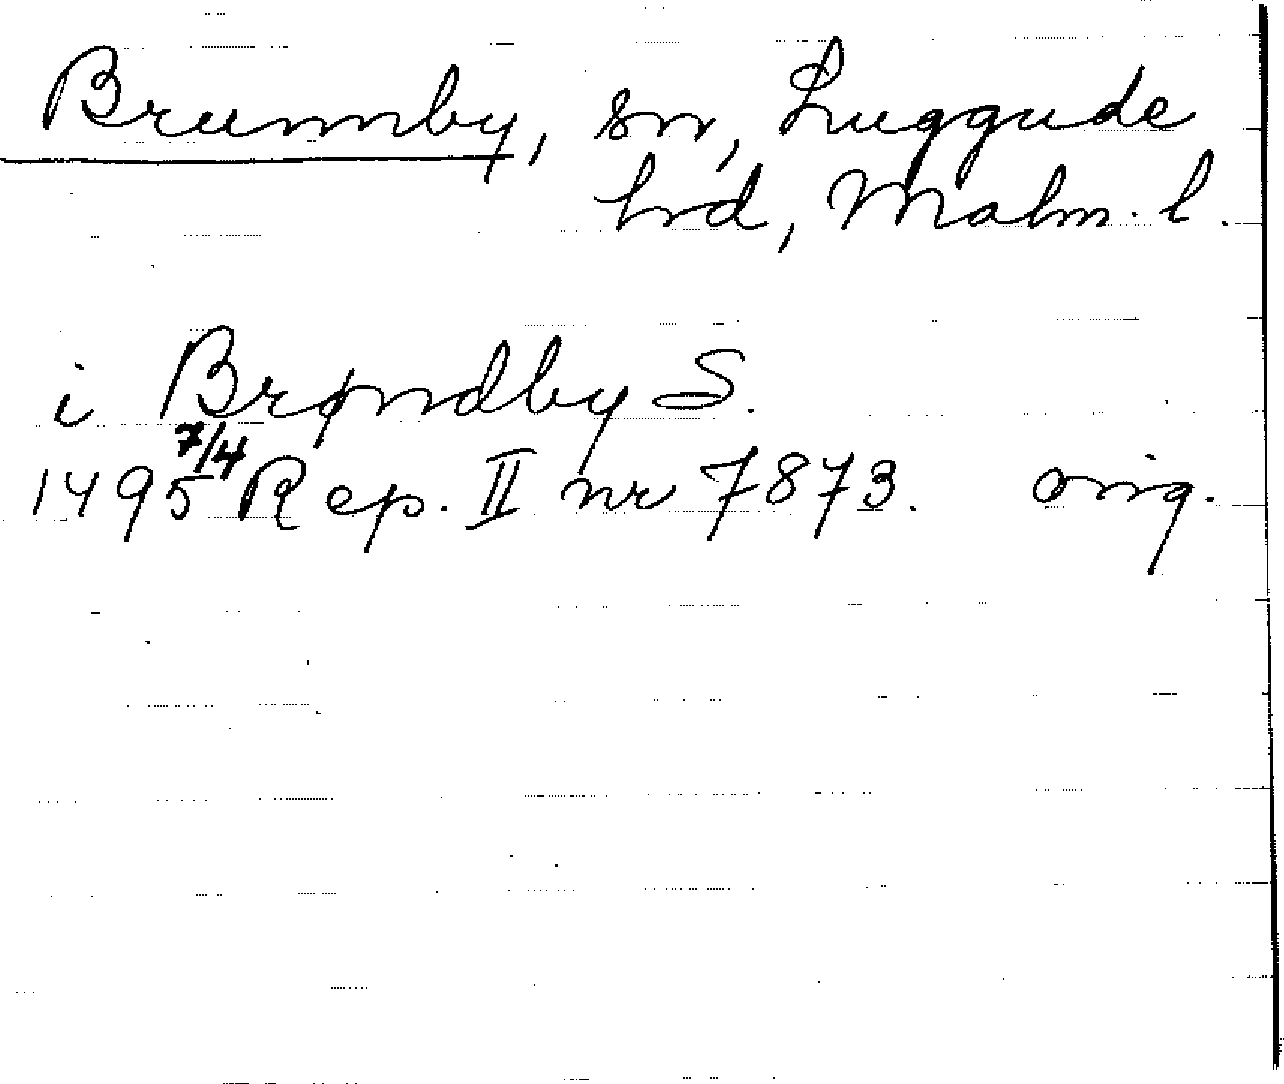 Brunnby, sn, Luggude
hd, Malm. l.
i Brøndby S.
1495 7/4 Rep. II nr 7873. orig.